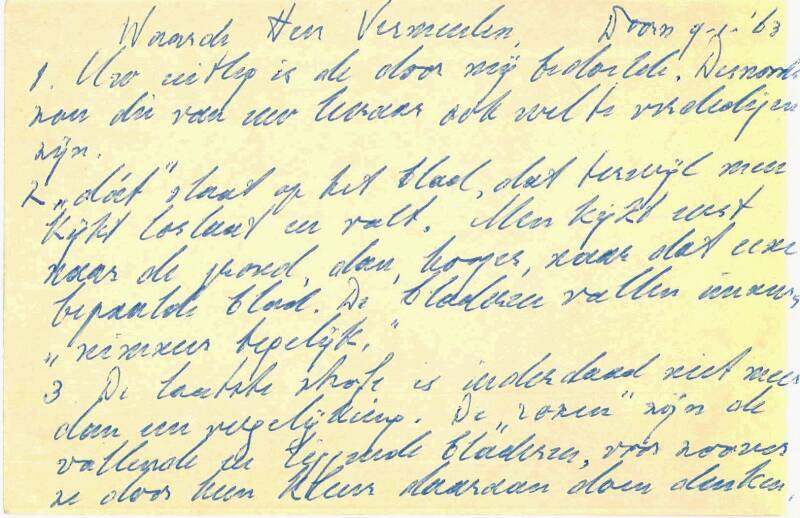 Waarde Heer Vermeulen, Doorn 9-1-'63
1. Uw uitleg is de door mij bedoelde. Desnoods
zou die van uw leraar ook wel te verdedigen
zijn.
2 „dóet" slaat op het blad, dat terwijl men
kijkt loslaat en valt. Men kijkt eerst
naar de grond, dan, hooger, naar dat eene
bepaalde blad. De bladeren vallen immers
„nimmer tegelijk."
3 De laatste strofe is inderdaad niet meer
dan een vergelijking. De "rozen" zijn de
vallende en liggende bladeren, voor zoover
ze door hun kleur daaraan doen denken.